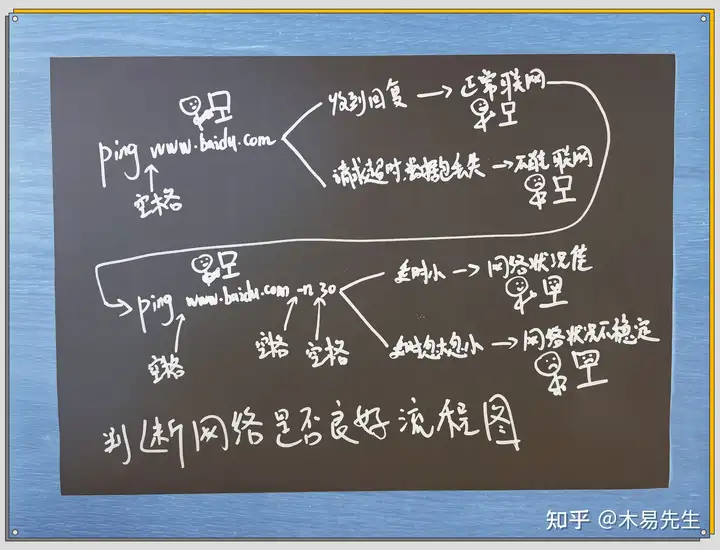 ping www.baidu.com
空格
收到回复 → 正常联网
请求超时,数据包丢失 → 不能联网
ping www.baidu.com -n 30
空格
空格
空格
延时小 → 网络状况佳
延时忽大忽小 → 网络状况不稳定
判断网络是否良好流程图
知乎 @木易先生